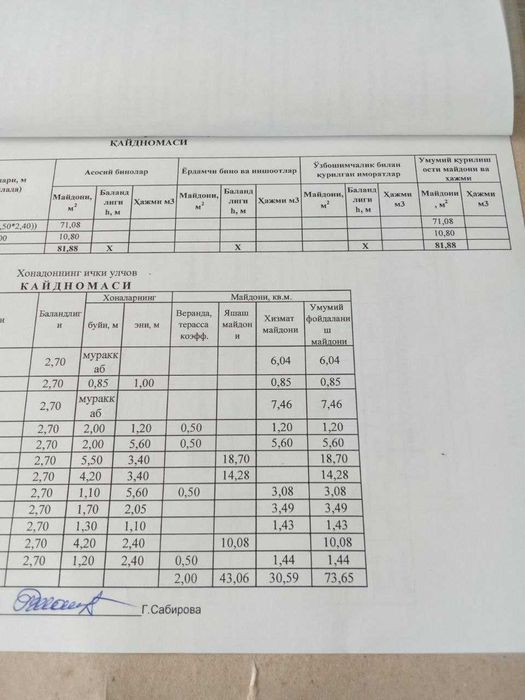 ҚАЙДНОМАСИ
лари, м
Асосий бинолар
Ёрдамчи бино ва иншоотлар
Ўзбошимчалик билан
қурилган иморатлар
Умумий қурилиш
ости майдони ва
ҳажми
Майдони, м² Баланд лиги h, м Ҳажми м3 Майдони, м² Баланд лиги h, м Ҳажми м3 Майдони, м² Баланд лиги h, м Ҳажми м3 Майдони , м² Ҳажми м3
,50*2,40)) 71,08 71,08
00 10,80 10,80
81,88 Х Х Х 81,88
Хонадоннинг ички улчов
КАЙДНОМАСИ
Баландлиг и Хоналарнинг Майдони, кв.м.
буйи, м эни, м Веранда, терасса коэфф. Яшаш майдон и Хизмат майдони Умумий фойдалани ш майдони
2,70 муракк аб 6,04 6,04
2,70 0,85 1,00 0,85 0,85
2,70 муракк аб 7,46 7,46
2,70 2,00 1,20 0,50 1,20 1,20
2,70 2,00 5,60 0,50 5,60 5,60
2,70 5,50 3,40 18,70 18,70
2,70 4,20 3,40 14,28 14,28
2,70 1,10 5,60 0,50 3,08 3,08
2,70 1,70 2,05 3,49 3,49
2,70 1,30 1,10 1,43 1,43
2,70 4,20 2,40 10,08 10,08
2,70 1,20 2,40 0,50 1,44 1,44
2,00 43,06 30,59 73,65
Г.Сабирова